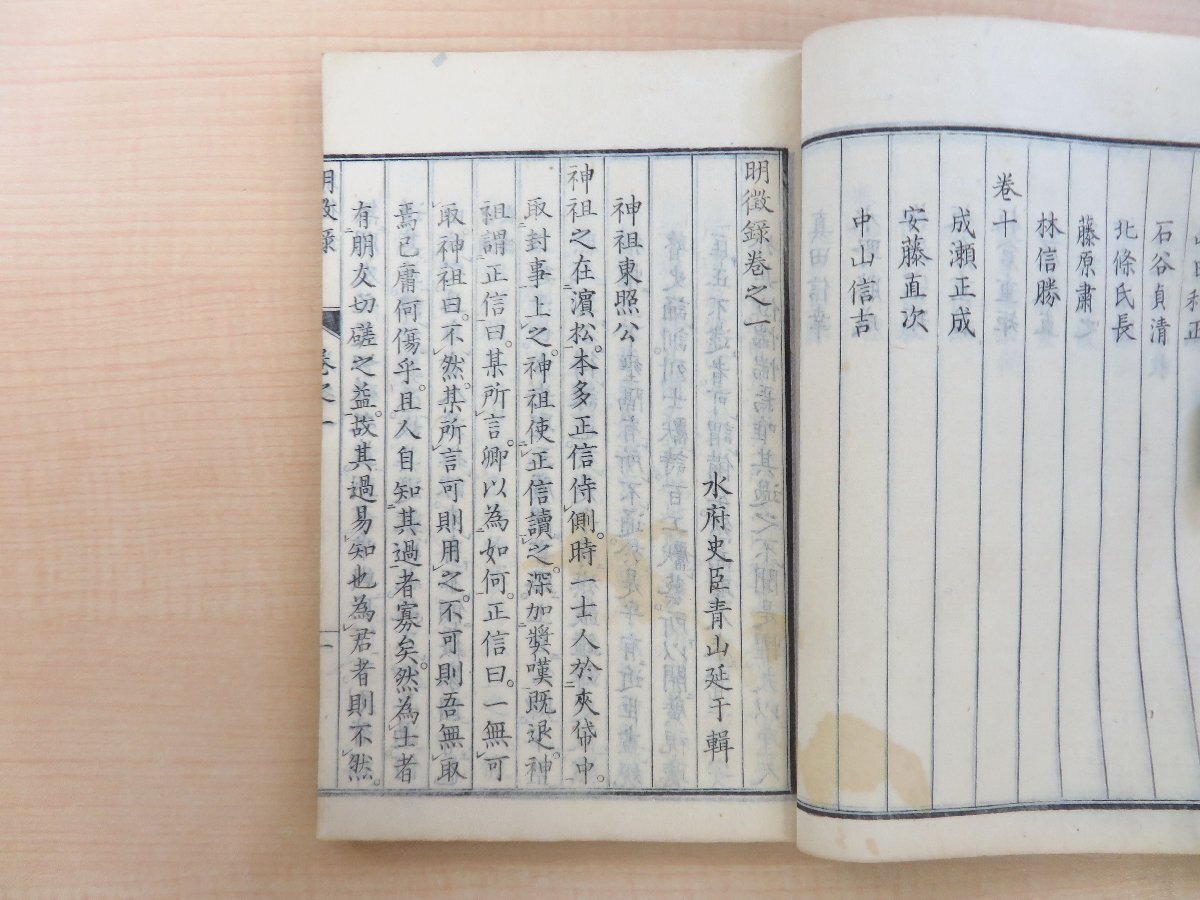 石谷貞清
北條氏長
藤原肅
林信勝
卷十
成瀬正成
安藤直次
中山信吉
明徴録卷之一
水府史臣青山延于輯
神祖東照公
神祖之在濱松。本多正信侍側。時一士人於夾帒中。
取封事上之。神祖使正信讀之。深加奬嘆既退。神
祖謂正信曰。某所言。卿以為如何。正信曰。一無可
取神祖曰。不然。某所言可則用之。不可則吾無取
焉已庸何傷乎。且人自知其過者寡矣。然為士者
有朋友切磋之益。故其過易知也為君者則不然。
卷之一
一